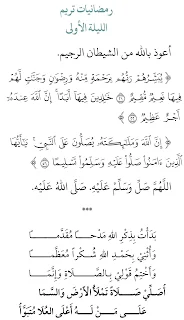 رمضانيات تريم
الليلة الأولى
أعوذ بالله من الشيطان الرجيم.
﴿ يُبَشِّرُهُمْ رَبُّهُم بِرَحْمَةٍ مِّنْهُ وَرِضْوَانٍ وَجَنَّاتٍ لَّهُمْ
فِيهَا نَعِيمٌ مُّقِيمٌ ۝ خَالِدِينَ فِيهَا أَبَدًا إِنَّ اللَّهَ عِندَهُ
أَجْرٌ عَظِيمٌ ﴾
﴿ إِنَّ اللَّهَ وَمَلَائِكَتَهُ يُصَلُّونَ عَلَى النَّبِيِّ يَا أَيُّهَا
الَّذِينَ آمَنُوا صَلُّوا عَلَيْهِ وَسَلِّمُوا تَسْلِيمًا ﴾
اللَّهُمَّ صَلِّ وَسَلِّمْ عَلَيْهِ. صَلَّى اللهُ عَلَيْهِ.
***
بَدَأْتُ بِذِكْرِ اللهِ مَدْحًا مُقَدَّمًا
وَأُثْنِي بِحَمْدِ اللهِ شُكْرًا مُعَظَّمًا
وَأَخْتِمُ قَوْلِي بِالصَّلَاةِ وَإِنَّمَا
أُصَلِّي صَلَاةً تَمْلَأُ الْأَرْضَ وَالسَّمَا
عَلَى مَنْ لَهُ أَعْلَى الْعُلَا مُتَبَوَّأُ